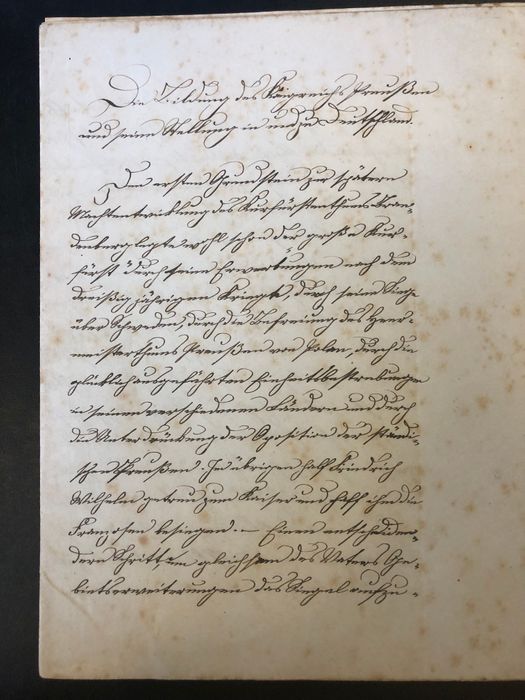 Die Bildung des Königreichs Preußen
und seine Stellung in und zu Deutschland.
Den ersten Grundstein zur spätern
Machtentwicklung des Kurfürstenthums Bran-
denburg legte wohl schon der große Kur-
fürst durch seine Erwerbungen nach dem
dreißig jährigen Kriege, durch seine Siege
über Schweden, durch die Befreiung des Herr-
meisterthums Preußen von Polen, durch die
glücklich ausgeführten Einheitsbestrebungen
in seinen verschiedenen Ländern und durch
die Unterdrückung der Oposition der ständi-
schen Preußen. Im übrigen half Friedrich
Wilhelm getreu zum Kaiser und half ihm die
Franzosen besiegen. — Einen entscheiden-
dern Schritt um gleichsam des Vaters Ge-
bietserweiterungen das Siegel aufzu-